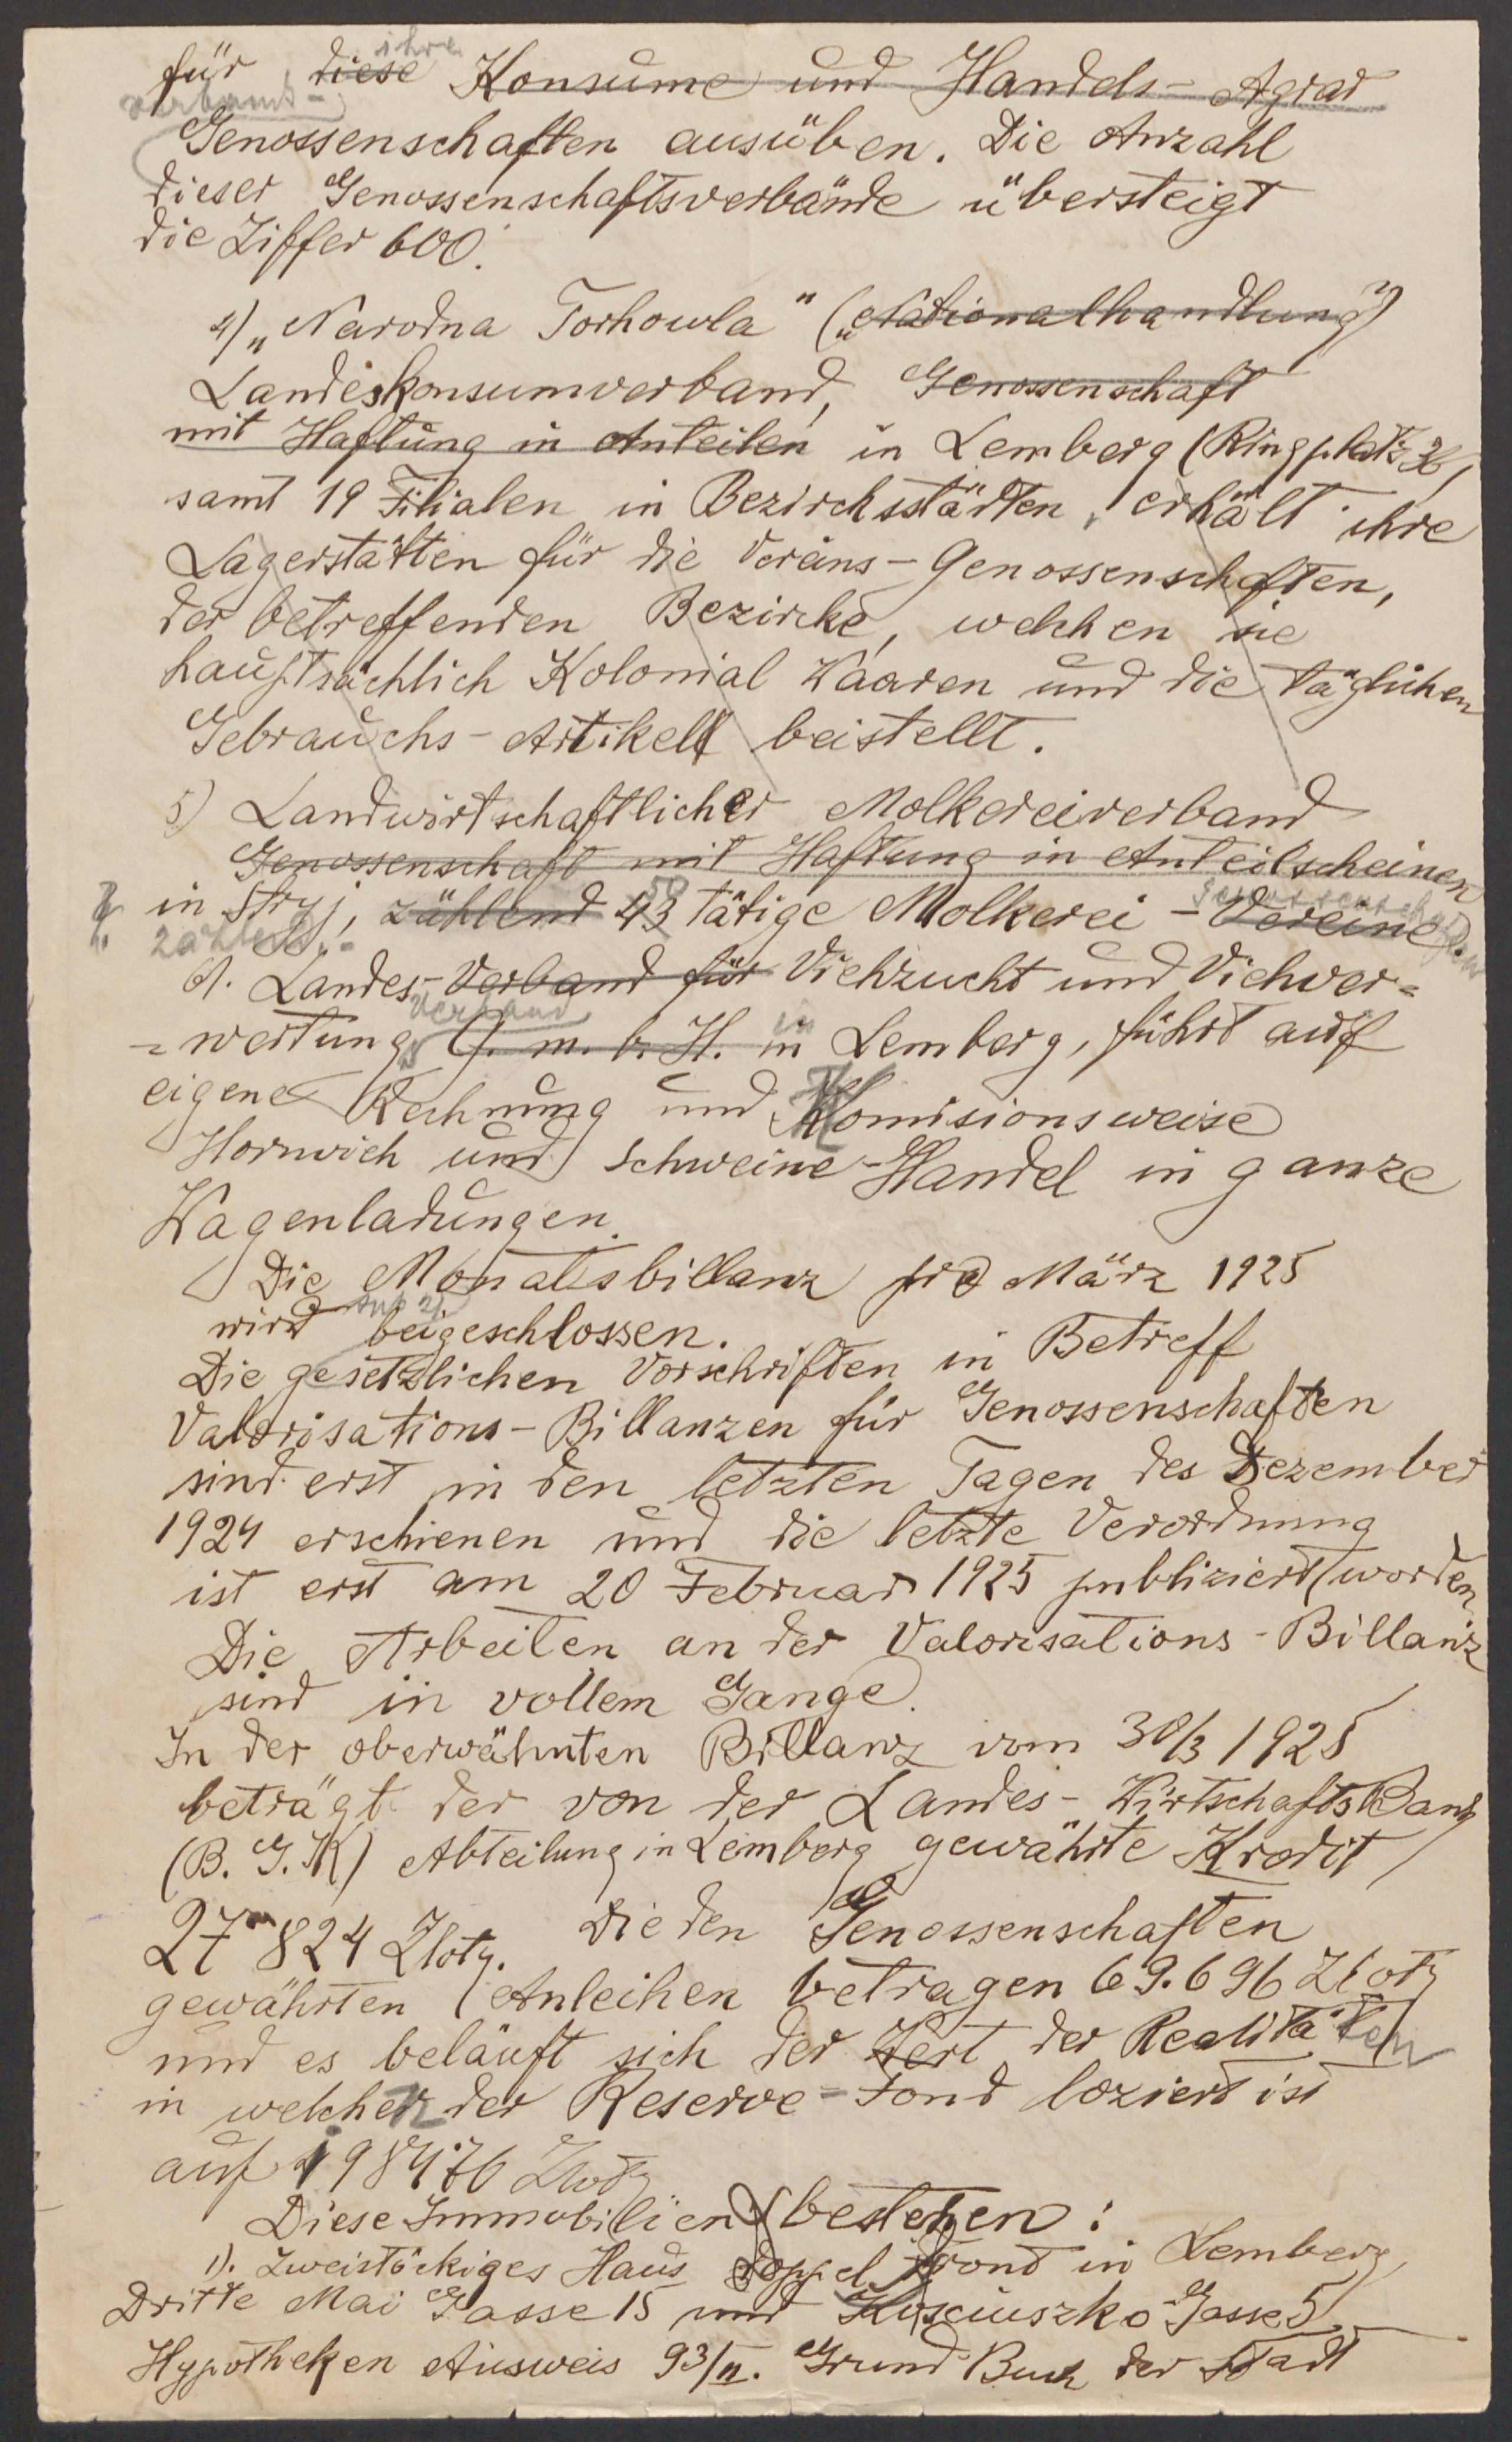 ihre
für diese Konsume und Handels- Agrar
verbands-
Genossenschaften ausüben. Die Anzahl
dieser Genossenschaftsverbände übersteigt
die Ziffer 600.
4) „Narodna Torhowla" („Nationalhandlung")
Landeskonsumverband, Genossenschaft
mit Haftung in Anteilen in Lemberg (Ringplatz 36)
samt 19 Filialen in Bezirchsstädten, erhält ihre
Lagerstätten für die Vereins-Genossenschaften,
der betreffenden Bezircke, welchen sie
hauptsächlich Kolonial Waaren und die täglichen
Gebrauchs-Artikell beistellt.
5) Landwirtschaftlicher Molkereiverband
Genossenschaft mit Haftung in Anteilscheinen
in Stryj, zählend 43 50 tätige Molkerei-Vereine.
zählend Genossenschaften
6). Landes-Verband für Viehzucht und Viehver=
Verband in
=wertungs G. m. b. H. in Lemberg, führt auf
eigene Rechnung und Komisionsweise
Hornvich und Schweine-Handel in ganze
Wagenladungen.
Die Monatsbillanz pro März 1925
sub 2)
wird beigeschlossen.
Die gesetzlichen Vorschriften in Betreff
Valorisations-Billanzen für Genossenschaften
sind erst in den letzten Tagen des Dezember
1924 erschienen und die letzte Verordnung
ist erst am 20 Februar 1925 publiziert worden.
Die Arbeiten an der Valorisations-Billanz
sind in vollem Gange.
In der oberwähnten Billanz vom 30/3 1925
beträgt der von der Landes-Wirtschafts Bank
(B. G. K) Abteilung in Lemberg gewährte Kredit
27 824 Zloty. Die den Genossenschaften
gewährten Anleihen betragen 69.696 Zloty
und es beläuft sich der Wert der Realitäten
in welchen der Reserve-Fond loziert ist
auf 198476 Zloty
Diese Immobilien bestehen:
1). Zweistöckiges Haus doppel Front in Lemberg
Dritte Mai Gasse 15 und Kosciuszko Gasse 5
Hypotheken Ausweis 93/II. Grund Buch der Stadt